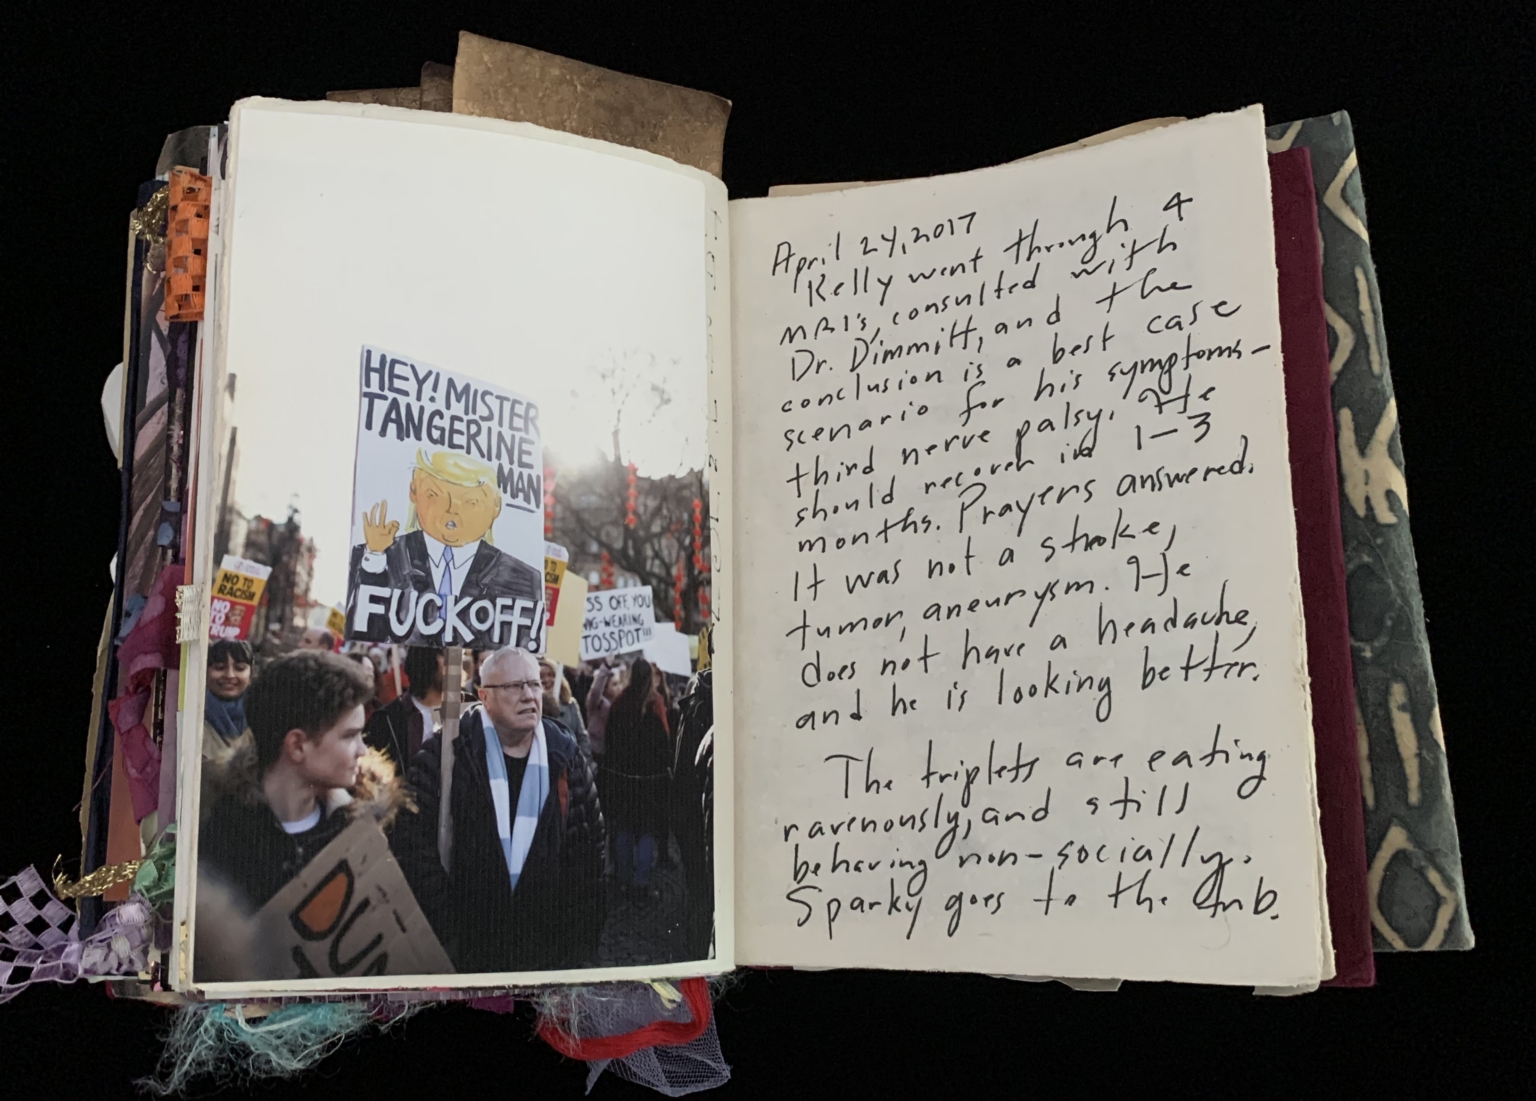 HEY! MISTER
TANGERINE
MAN
FUCK OFF!
NO TO
RACISM
NO
TO
TRUMP
SS OFF, YOU
WIG-WEARING
TOSSPOT!!!
DUM
April 24, 2017
Kelly went through 4
MRI's, consulted with
Dr. Dimmitt, and the
conclusion is a best case
scenario for his symptoms-
third nerve palsy. He
should recover in 1-3
months. Prayers answered.
It was not a stroke,
tumor, aneurysm. He
does not have a headache,
and he is looking better.
The triplets are eating
ravenously, and still
behaving non-socially.
Sparky goes to the